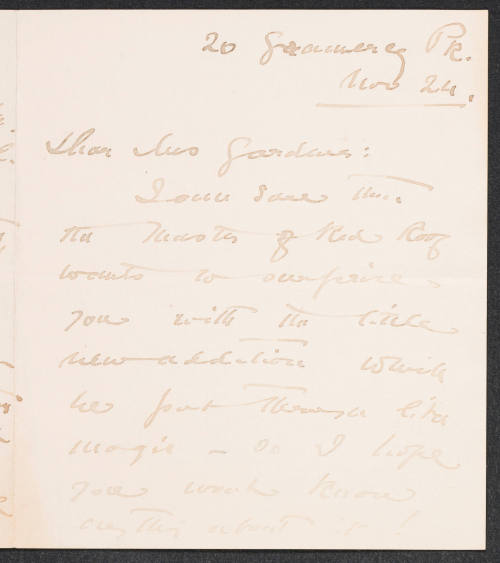 20 Gramercy Pk.
Nov 24.
Dear Mrs Gardner:
I am sure that
the Master of Red Roof
wants to surprise
you with the little
new addition which
he put through like
magic – so I hope
you wont know
anything about it!